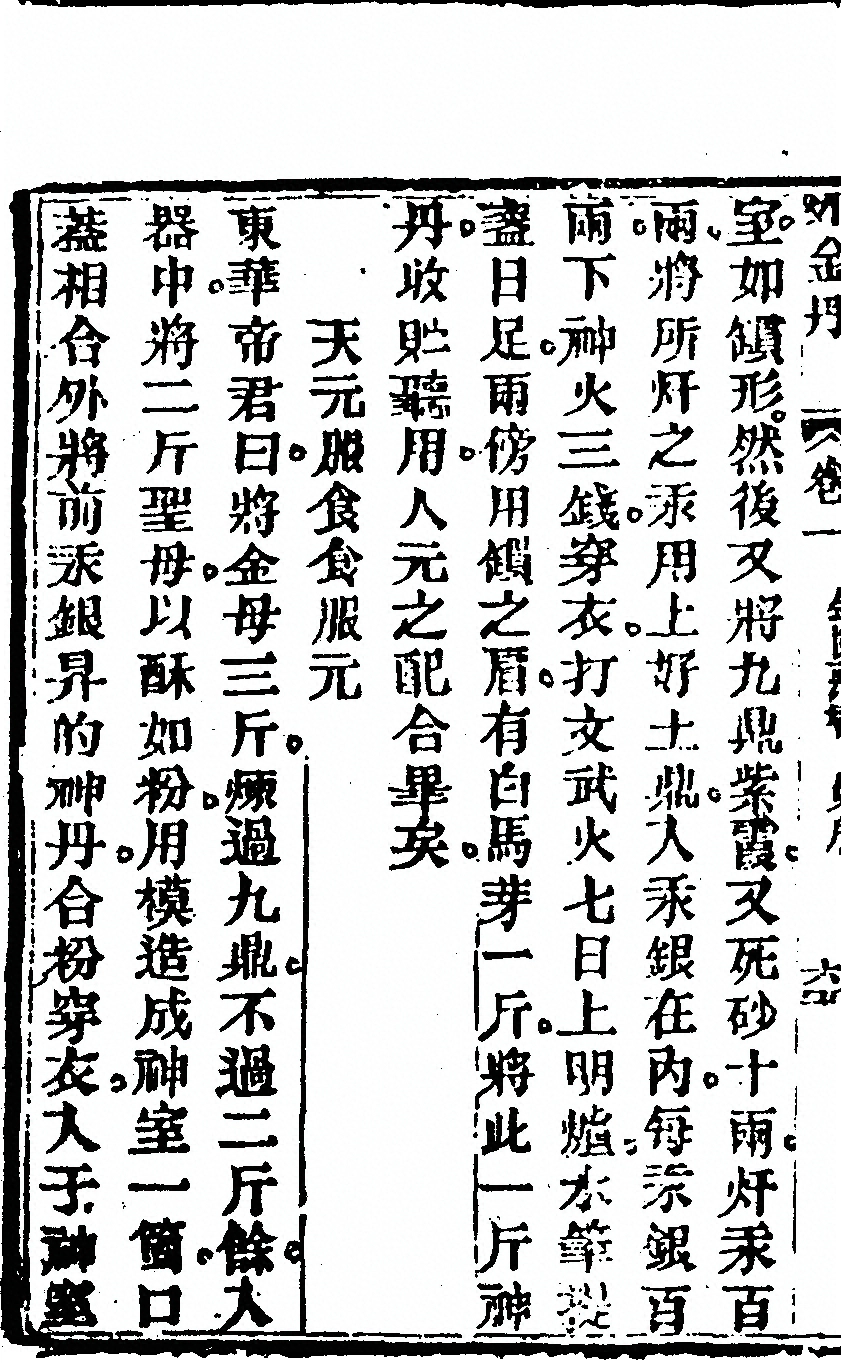 金丹 卷一 六
室如鎖形。然後又將九鼎紫霞。又死砂十兩。灴汞百
兩。將所灴之汞用上好土鼎。入汞銀在內。每汞銀百
兩。下神火三錢。穿衣。打文武火七日上明爐。水
盞日足。兩傍用鎖之。眉有白馬芽一斤。將此一斤神
丹。收貯聽用。人元之配合畢矣。
天元服食食服元
東華帝君曰。將金母三斤。煉過九鼎。不過二斤餘。入
器中。將二斤聖母。以酥如粉。用模造成神室一箇。口
蓋相合外將前汞銀昇的神丹。合粉穿衣。入于神室